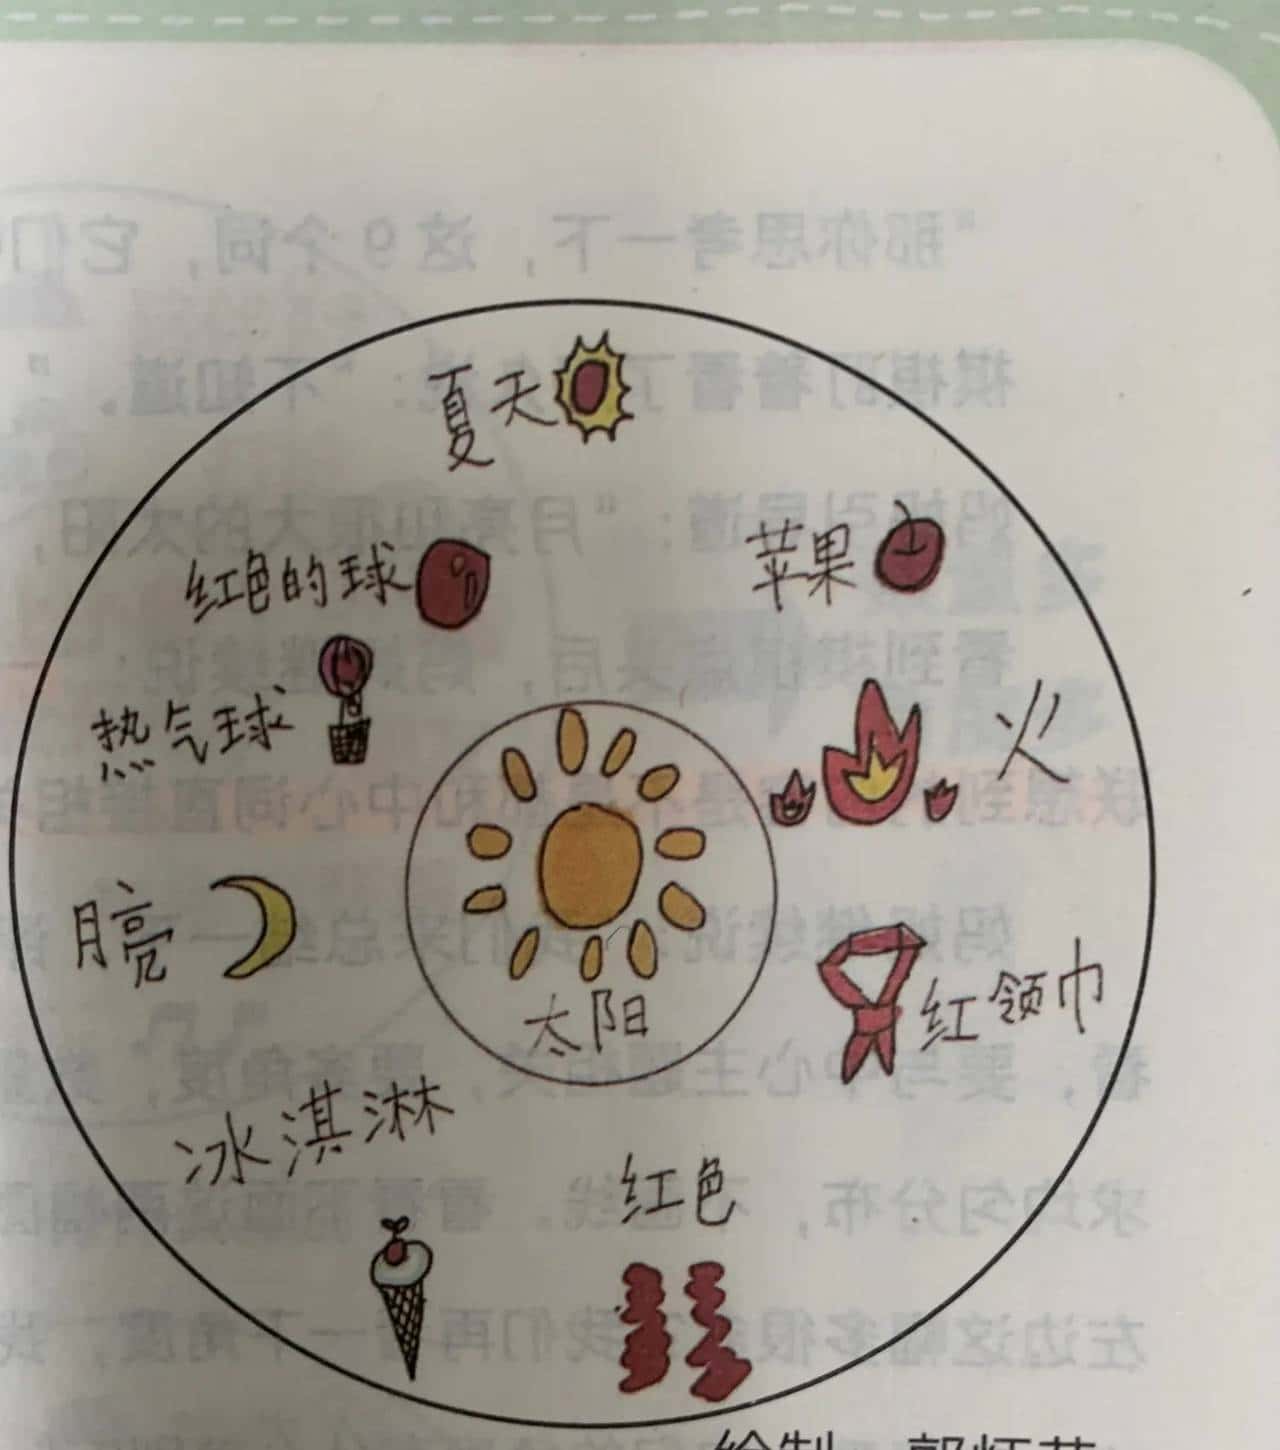 夏天
苹果
红色的球
火
热气球
月亮
太阳
红领巾
冰淇淋
红色